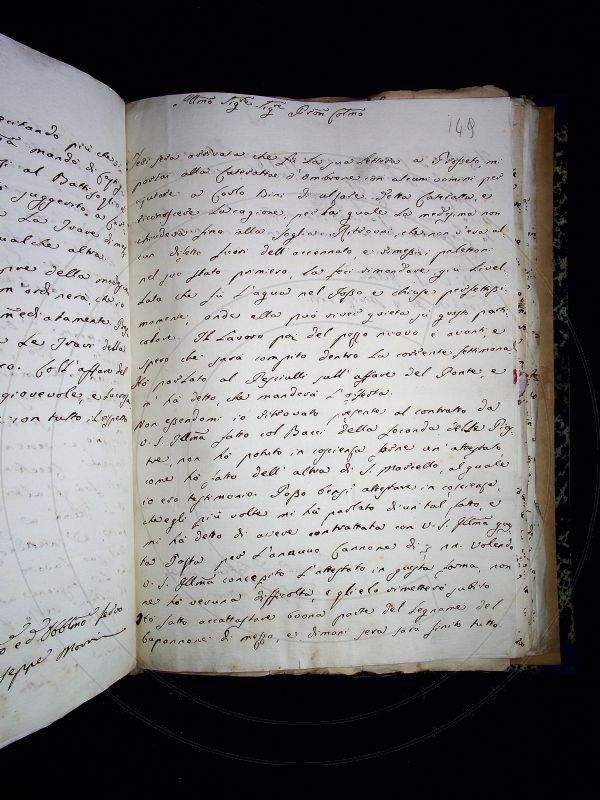 Illmo Sigre Sigre Pron Colmo
149
Ieri sera arrivata che fù la sua lettera a Rispeto, mi
portai alla Cateratta d'Ombrone con alcuni uomini per
ajutare a Carlo Dini di alzare detta Cateratta, e
riconoscere la cagione, per la quale la medesima non
chiudeva fino alla soglia. Ritrovai, che non v'era al
cun difetto fuori dell'accennato, e rimessi i paletroni
nel suo stato primiero, la feci rimandare giù. Livel
lata che fù l'acqua nel Fosso, e chiuse perfettissi
mamente, onde ella può viver quieta sù questo parti
colare. Il Lavoro poi del pezzo nuovo è avanti, e
spero che sarà compito dentro la corrente settimana.
Hò parlato al Pesciulli sull'affare del Ponte, e
m'hà detto, che manderà l'
Non essendomi io ritrovato presente al contratto da
V. S. Illma fatto col Bacci della seconda delle Pos
te, non hò potuto in coscienza farne un'attestato
come hò fatto dell'altra di S. Marcello, al quale
io ero testimonio. Posso bensì attestare in coscienza,
che egli più volte mi hà parlato di un tal fatto, e
mi hà detto di avere contrattata con V. S. Illma ques
ta Posta per l'annuo Cannone di nn. Volendo
V. S. Illma concepito l'attestato in questa forma, non
ne hò veruna difficoltà, e glielo rimetterò subito.
Hò fatto accattastare buona parte del Legname del
Capannone di mezzo, e dimani sera sarà finito tutto.
più che
mandò di
al Batti
suggerito a
La Trave di
qualche altra.
della
ordinerà, che
mediatamente
Le Travi della
Coll'affare del
giovevole, e
con tutto il rispetto
ed Obblmo Servo
seppe